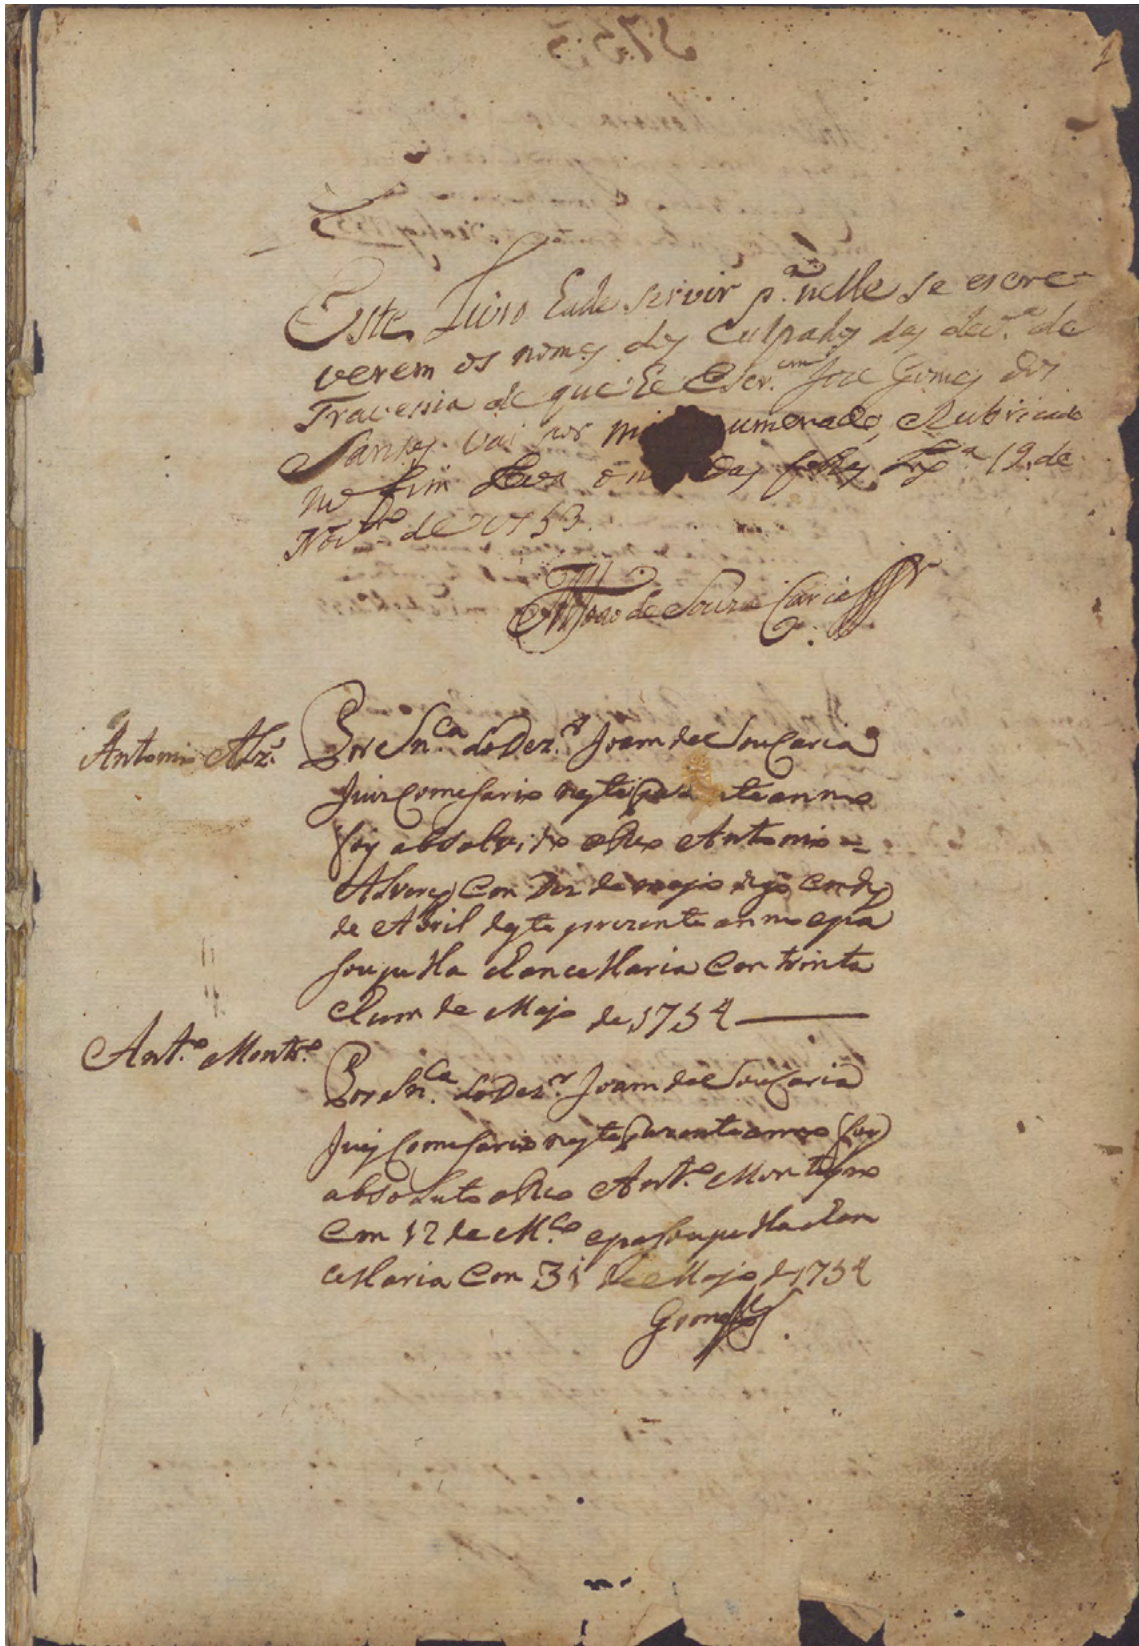 1
Este Livro hade servir p.ª nelle se escre-
verem os nomes dos Culpados das dev.as de
Travessia de que he Escr.am Joze Gomes dos
Santos Vai por mi numerado, Rubricado
no fim Leva o n das folhas Lx.ª 12 de
Nov.bro de 1753.
de Souza Caria
Antonio Alz.'
Por Sn.ca do Dez.or Joam de Souz Caria
Juiz Comesario neste prezente anno
foy absolvido o Reo Antonio =
Alvares Com Dez de mayo digo Con dez
de Abril deste prezente anno e pa
sou pella Chancellaria Con trinta
e hum de Mayo de 1754
Ant.º Montr.º
Por Sn.ca do Dez.or Joam de Souz Caria
Juiz Comesario neste prezente anno foy
absoluto o Reo Ant.º Monteyro
Com 12 de M.ço e pasou pella Chan
cellaria Com 31 de Mayo de 1754
Gomes